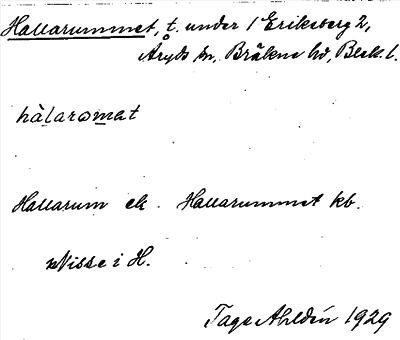 Hallarummet, t. under 1 Eriksberg 2,
Åryds sn, Bräkne hd, Blek. l.
hàlaromat
Hallarum ek. Hallarummet kb.
Nisse i H.
Tage Ahldén 1929